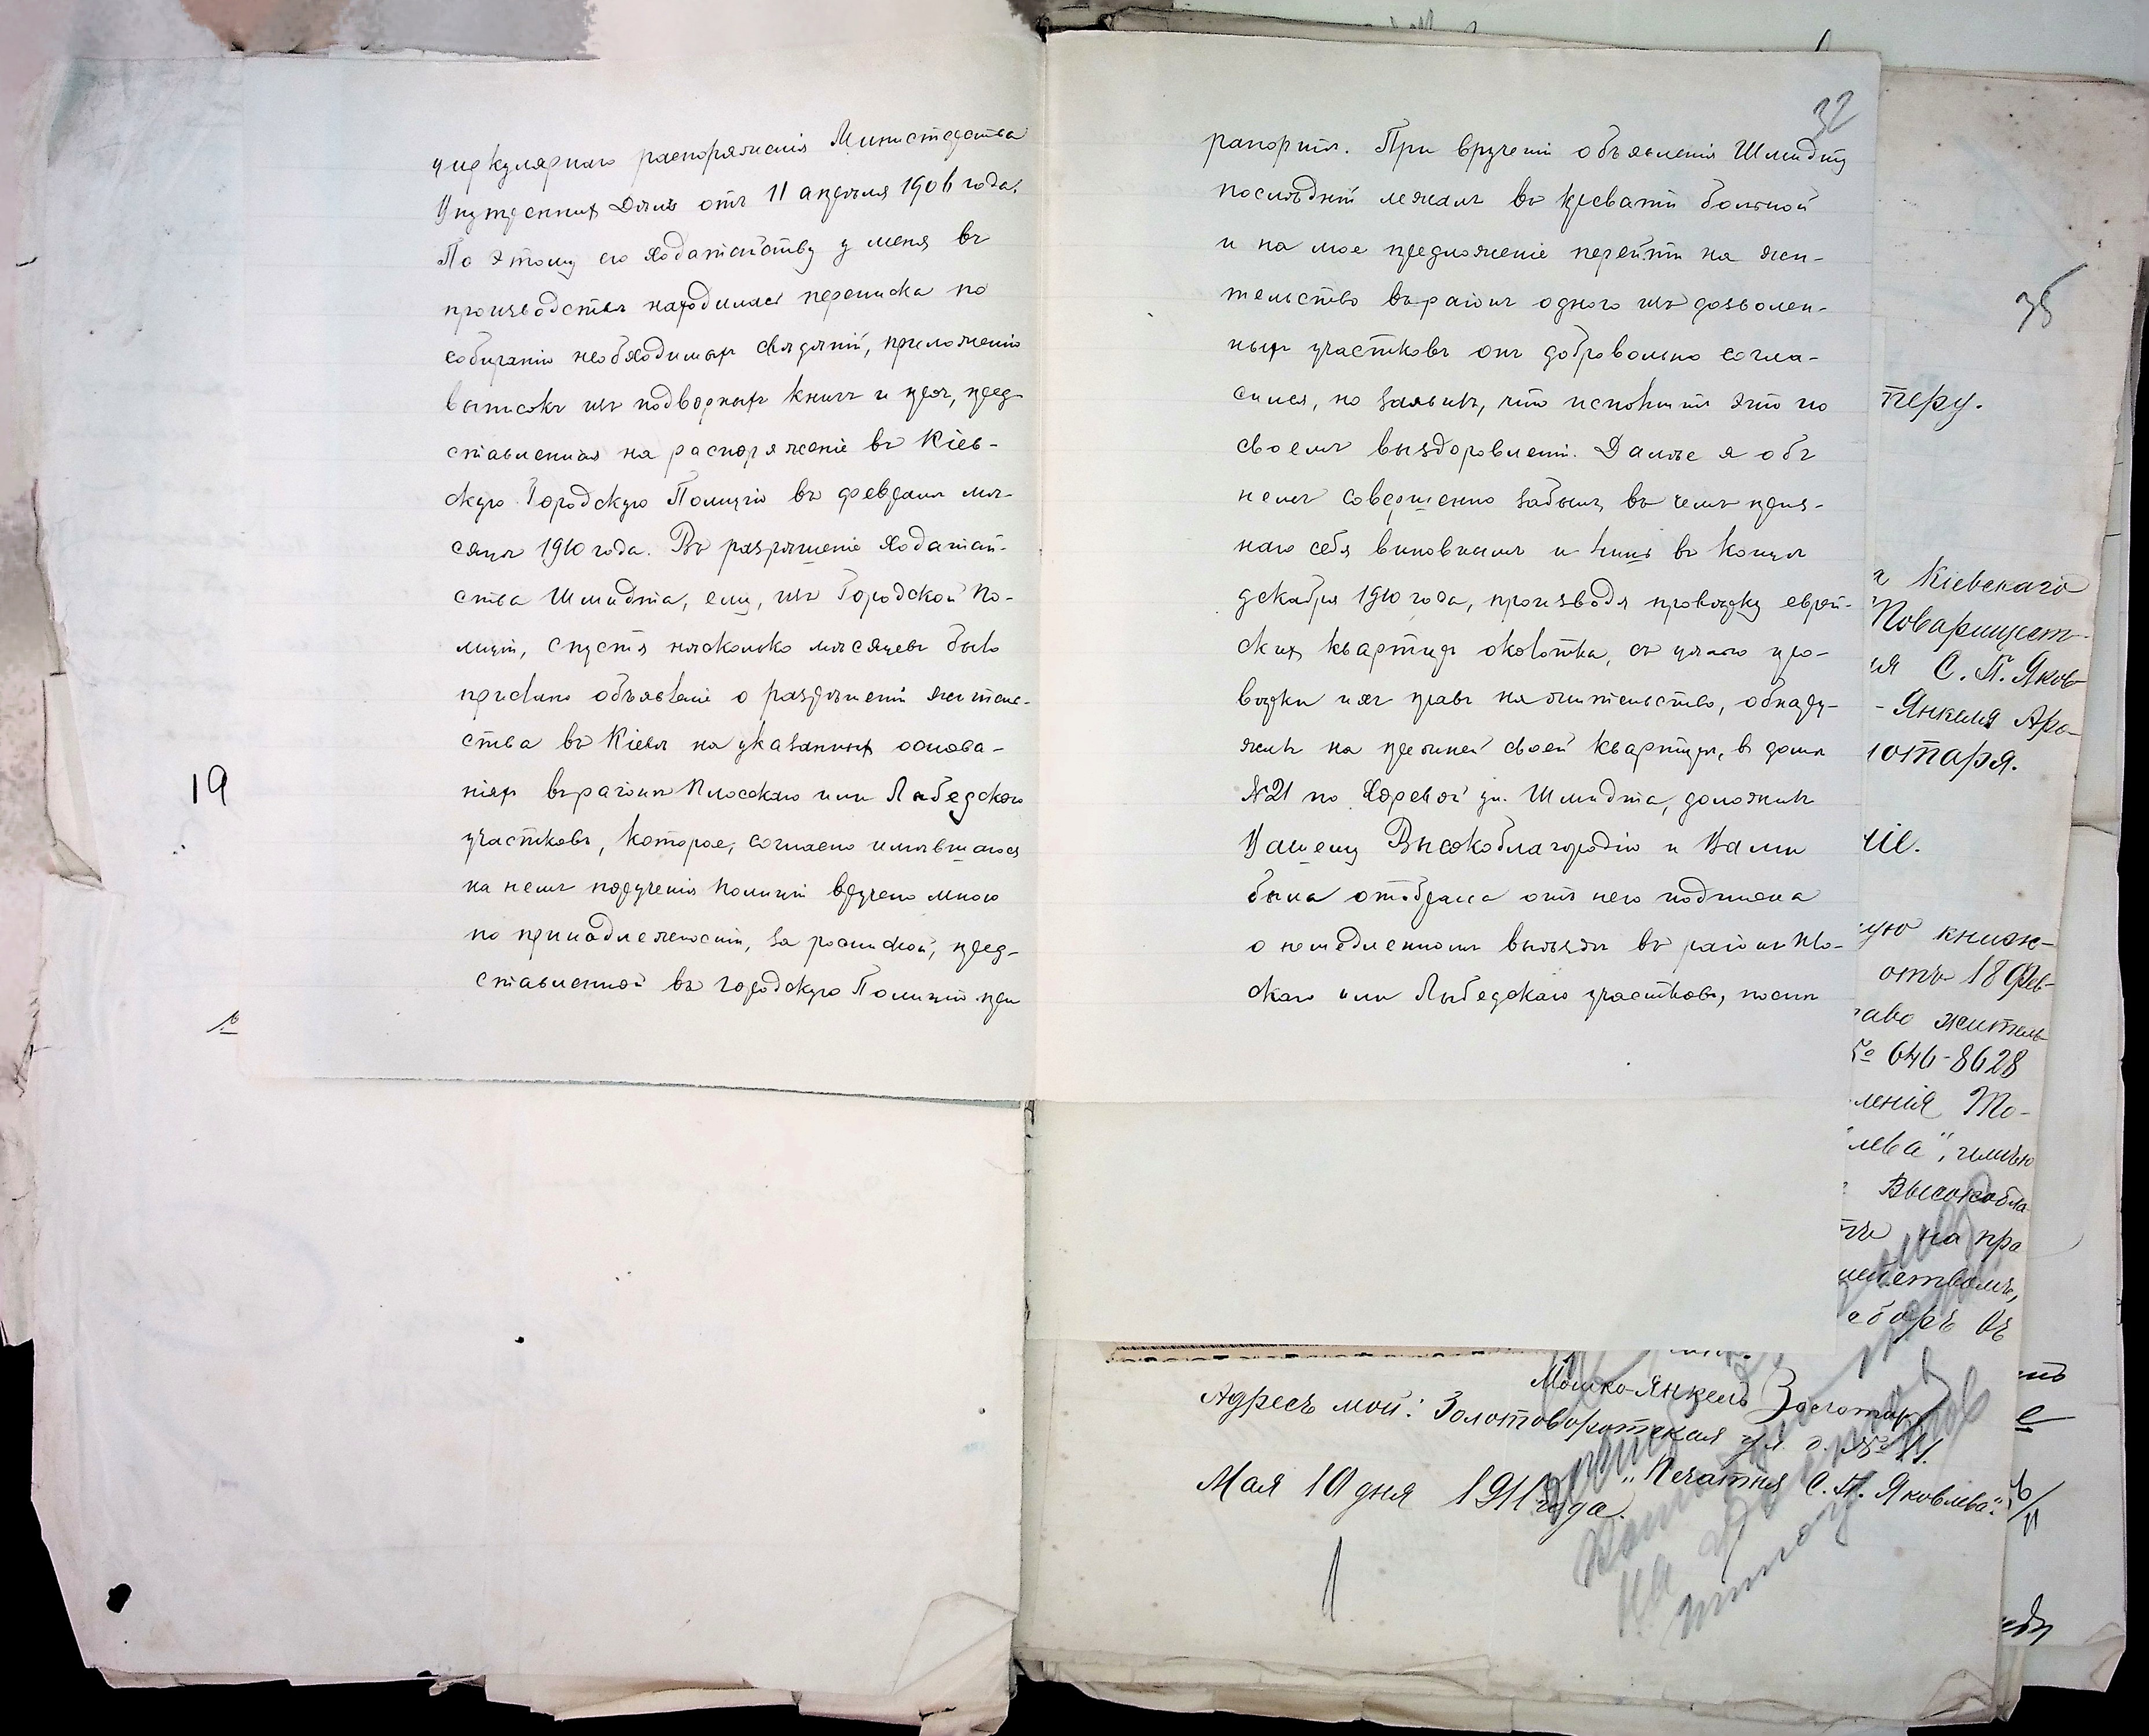 циркулярнаго распоряженія Министерства
Внутреннихъ Дѣлъ отъ 11 апрѣля 1906 года.
По этому его ходатайству у меня въ
производствѣ находилась переписка по
собиранію необходимыхъ свѣдѣній, приложенію
выписокъ изъ подворныхъ книгъ и проч, пред-
ставленная на распоряженіе въ Кіев-
скую Городскую Полицію въ февралѣ мѣ-
сяцѣ 1910 года. Въ разрѣшеніе ходатай-
ства Шмидта, ему, изъ Городской По-
лиціи, спустя нѣсколько мѣсяцевъ было
прислано объявленіе о разрѣшеніи житель-
ства въ Кіевѣ на указанныхъ основа-
ніяхъ въ раіонѣ Плоскаго или Лыбедскаго
участковъ, которое, согласно имѣвшагося
на немъ порученія Полиціи вручено мною
по принадлежности, за роспиской, пред-
ставленной въ городскую Полицію при
19
32
рапортѣ. При врученіи объявленія Шмидту
послѣдній лежалъ въ кровати больной
и на мое предложеніе перейти на жи-
тельство въ раіонъ одного изъ дозволен-
ныхъ участковъ онъ добровольно согла-
сился, но заявилъ, что исполнитъ это по
своемъ выздоровленіи. Далѣе я объ
немъ совершенно забылъ, въ чемъ приз-
наю себя виновнымъ и лишь въ концѣ
декабря 1910 года, производя провѣрку еврей-
скихъ квартиръ околотка, съ цѣлью про-
вѣрки ихъ правъ на жительство, обнару-
жилъ на прежней своей квартирѣ, въ домѣ
№21 по Хоревой ул. Шмидта, доложилъ
Вашему Высокоблагородію и Вами
была отобрана отъ него подписка
о немедленномъ выѣздѣ въ раіонъ Пло-
скаго или Лыбедскаго участковъ, послѣ
35
перу.
Кіевскаго
Товарищест-
С. П. Яков-
- Янкеля Аро-
отаря.
ніе.
книж-
отъ 18 Фев-
раво житель-
№ 646-8628
ленія То-
лева", имѣю
Высокобла-
на пра
Мошко-Янкель Золотарь
Адресъ мой: Золотоворотская ул. д. № 11.
"Печатня С. П. Яковлева".
Мая 10 дня 1911 года.